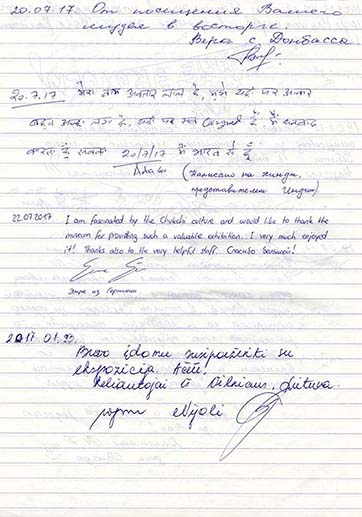 20.07.17 От посещения Вашего
музея в восторге.
Вера с Донбасса
20.7.17 मेरा नाम अवतार लाल है, मुझे यहाँ पर आकर
बहुत अच्छा लगा है, यहाँ पर सब है मैं धन्यवाद
करता हूँ सबका 20/7/17 मैं भारत से हूँ
(написано на хинди,
представителем Индии)
22.07.2017 I am fascinated by the Chukchi culture and would like to thank the
museum for providing such a valuable exhibition. I very much enjoyed
it! Thanks also to the very helpful staff. Спасибо большой!
из Германии
Buvo įdomu susipažinti su
ekspozicija. Ačiū!
Keliautojai iš Vilniaus, Lietuva.
Nijolė